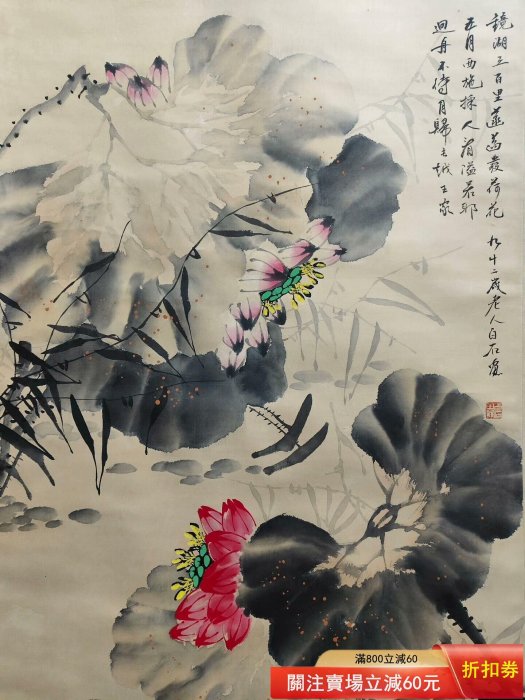 鏡湖三百里菡萏發荷花
五月西施採人看隘若耶
迴舟不待月歸去越王家
九十二歲老人白石
滿800立減60
關注賣場立減60元
折扣券